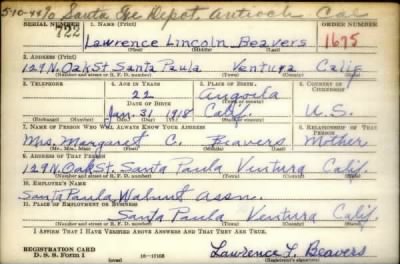 5-10-44 % Santa Fe Depot, Antioch, Cal
SERIAL NUMBER 1. NAME (Print) ORDER NUMBER
722 Lawrence Lincoln Beavers 1675
(First) (Middle) (Last)
2. ADDRESS (Print)
129 N. Oak St Santa Paula Ventura Calif.
(Number and street or R. F. D. number) (Town) (County) (State)
3. TELEPHONE 4. AGE IN YEARS 5. PLACE OF BIRTH 6. COUNTRY OF CITIZENSHIP
22 Angiola
DATE OF BIRTH (Town or county)
Jan. 31 1918 Calif. U.S.
(Exchange) (Number) (Mo.) (Day) (Yr.) (State or country)
7. NAME OF PERSON WHO WILL ALWAYS KNOW YOUR ADDRESS 8. RELATIONSHIP OF THAT PERSON
Mrs. Margaret C. Beavers Mother
(Mr., Mrs., Miss) (First) (Middle) (Last)
9. ADDRESS OF THAT PERSON
129 N. Oak St. Santa Paula Ventura Calif.
(Number and street or R. F. D. number) (Town) (County) (State)
10. EMPLOYER'S NAME
Santa Paula Walnut Assn.
11. PLACE OF EMPLOYMENT OR BUSINESS
Santa Paula Ventura Calif.
(Number and street or R. F. D. number) (Town) (County) (State)
I AFFIRM THAT I HAVE VERIFIED ABOVE ANSWERS AND THAT THEY ARE TRUE.
REGISTRATION CARD
D. S. S. Form 1 (over) Lawrence L. Beavers
(Registrant's signature)